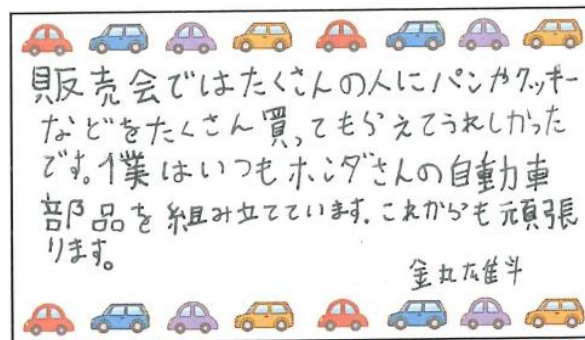 販売会ではたくさんの人にパンやクッキー
などをたくさん買ってもらえてうれしかった
です。僕はいつもホンダさんの自動車
部品を組み立てています。これからも頑張
ります。
金丸雄斗